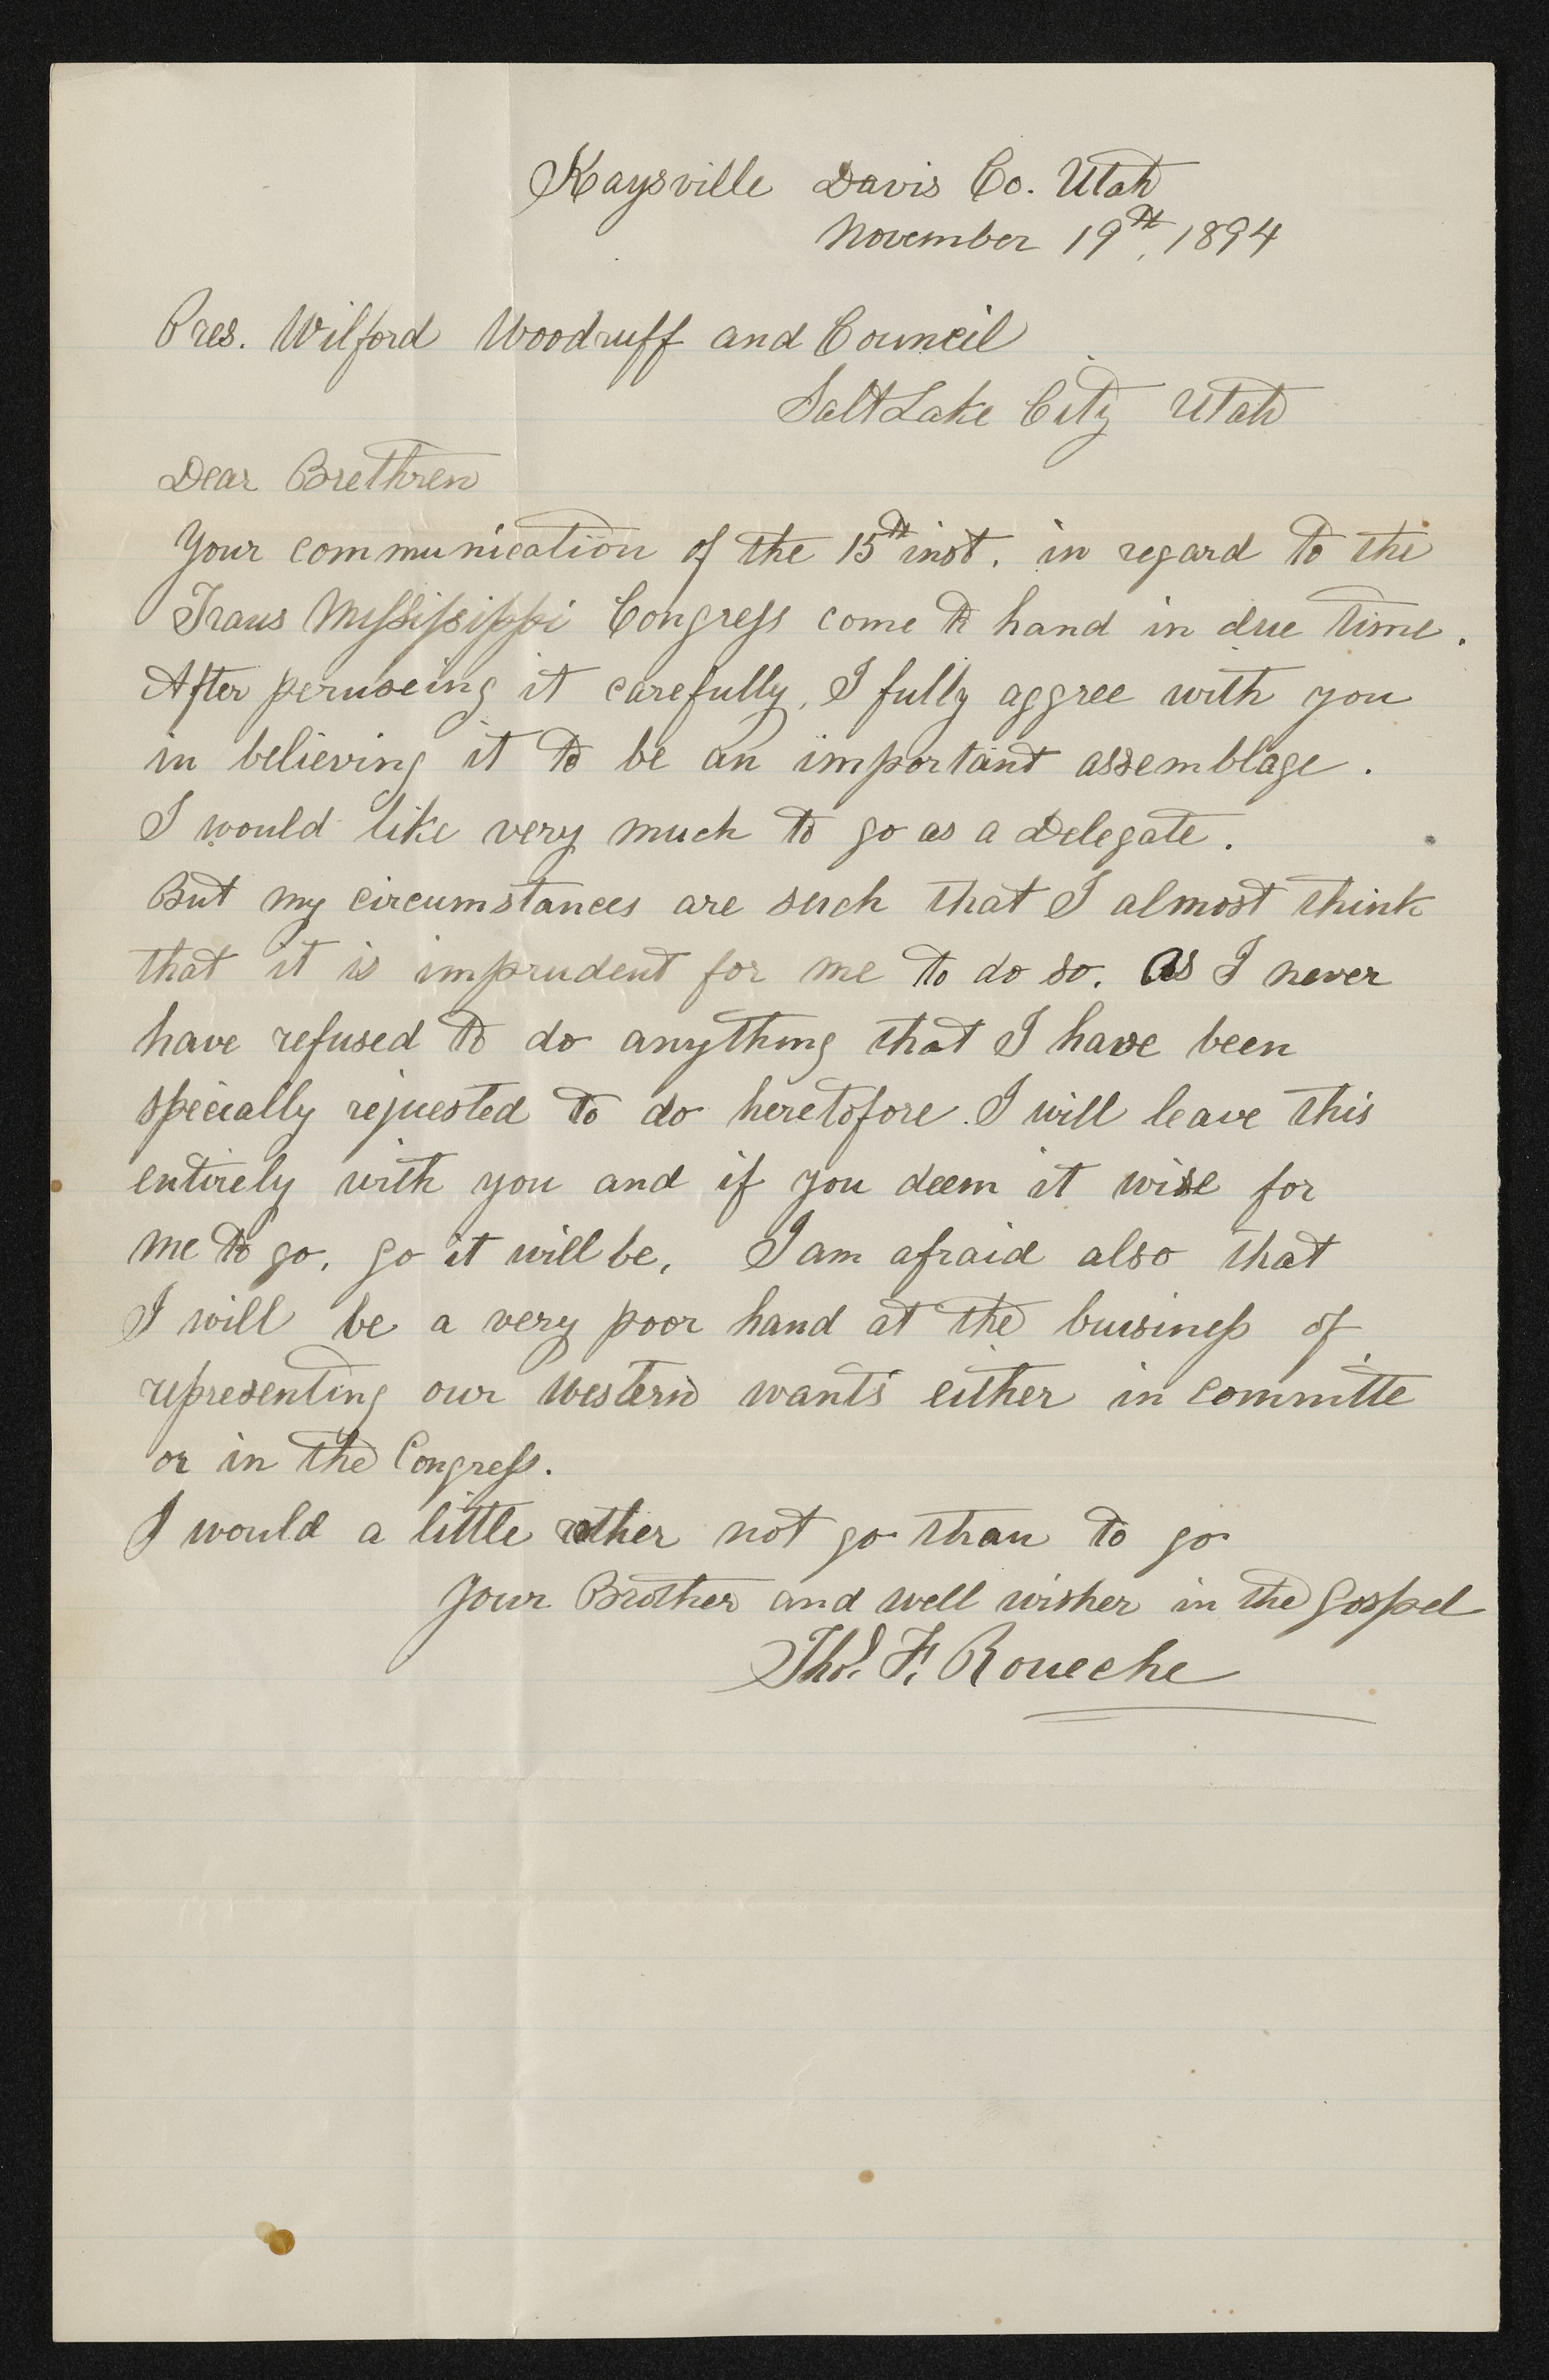 Kaysville Davis Co. Utah
November 19th, 1894
Pres. Wilford Woodruff and Council
Salt Lake City Utah
Dear Brethren
Your communication of the 15th inst. in regard to the
Trans Mississippi Congress come to hand in due time.
After peruseing it carefully, I fully aggree with you
in believing it to be an important assemblage.
I would like very much to go as a Delegate.
But my circumstances are such that I almost think
that it is imprudent for me to do so. As I never
have refused to do anything that I have been
specially requested to do heretofore. I will leave this
entirely with you and if you deem it wise for
me to go, go it will be, I am afraid also that
I will be a very poor hand at the buisiness of
representing our Western wants either in committe
or in the Congress.
I would a little rather not go than to go
Your Brother and well wisher in the Gospel
Thos. F. Roueche